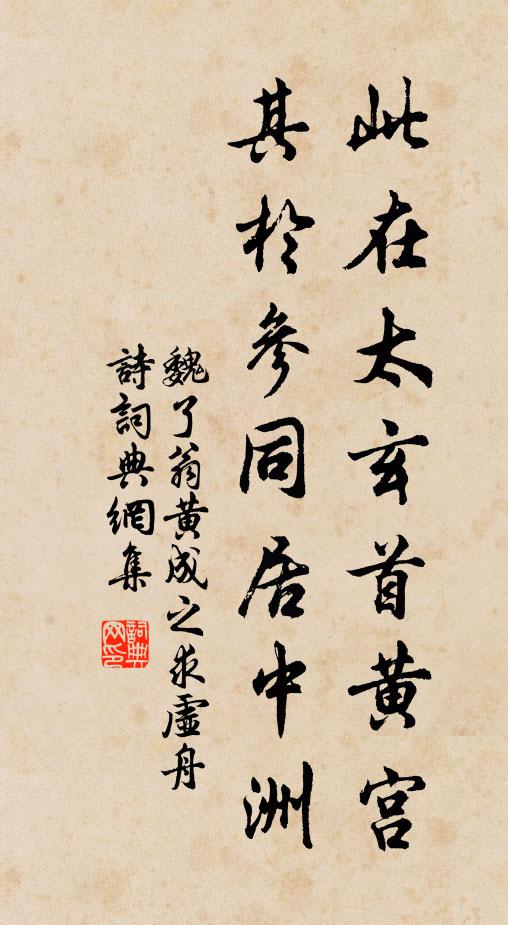 此在太玄首黄宫
其於參同居中洲
魏了翁黄成之求虛舟
詩詞典網集
詞典網印